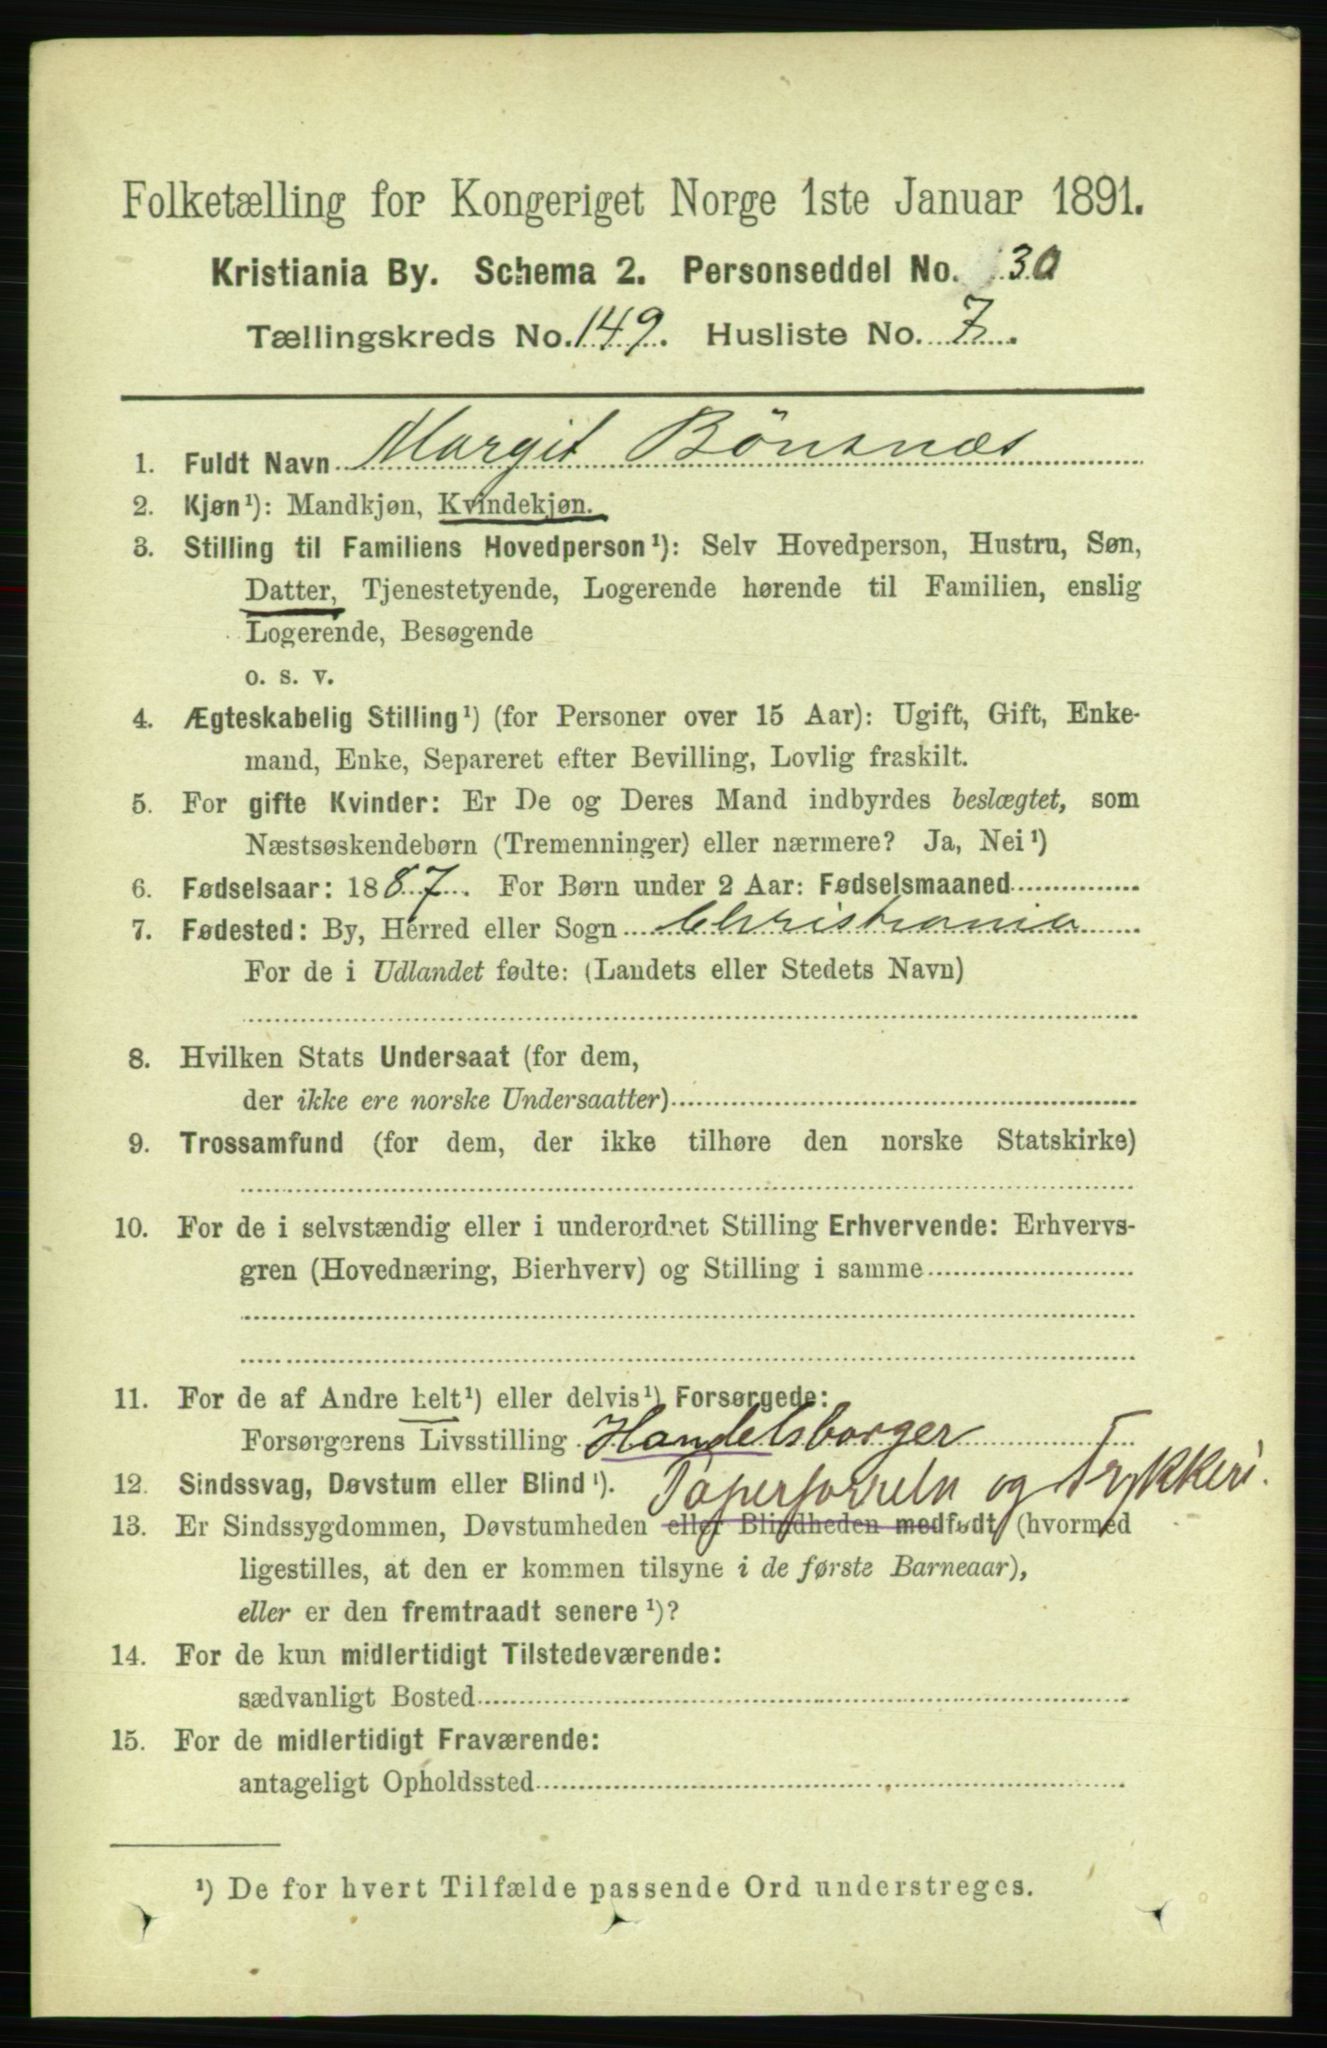 Folketælling for Kongeriget Norge 1ste Januar 1891.
Kristiania By. Schema 2. Personseddel No. 30
Tællingskreds No. 149. Husliste No. 7.
1. Fuldt Navn Margit Bönsnæs
2. Kjøn¹): Mandkjøn, Kvindekjøn.
3. Stilling til Familiens Hovedperson¹): Selv Hovedperson, Hustru, Søn,
Datter, Tjenestetyende, Logerende hørende til Familien, enslig
Logerende, Besøgende
o. s. v.
4. Ægteskabelig Stilling¹) (for Personer over 15 Aar): Ugift, Gift, Enke-
mand, Enke, Separeret efter Bevilling, Lovlig fraskilt.
5. For gifte Kvinder: Er De og Deres Mand indbyrdes beslægtet, som
Næstsøskendebørn (Tremenninger) eller nærmere? Ja, Nei¹)
6. Fødselsaar: 1887. For Børn under 2 Aar: Fødselsmaaned
7. Fødested: By, Herred eller Sogn Christiania
For de i Udlandet fødte: (Landets eller Stedets Navn)
8. Hvilken Stats Undersaat (for dem,
der ikke ere norske Undersaatter)
9. Trossamfund (for dem, der ikke tilhøre den norske Statskirke)
10. For de i selvstændig eller i underordnet Stilling Erhvervende: Erhvervs-
gren (Hovednæring, Bierhverv) og Stilling i samme
11. For de af Andre helt¹) eller delvis¹) Forsørgede:
Forsørgerens Livsstilling Handelsborger
12. Sindssvag, Døvstum eller Blind¹). og Trykkeri.
13. Er Sindssygdommen, Døvstumheden eller Blindheden medfødt (hvormed
ligestilles, at den er kommen tilsyne i de første Barneaar),
eller er den fremtraadt senere¹)?
14. For de kun midlertidigt Tilstedeværende:
sædvanligt Bosted
15. For de midlertidigt Fraværende:
antageligt Opholdssted
¹) De for hvert Tilfælde passende Ord understreges.